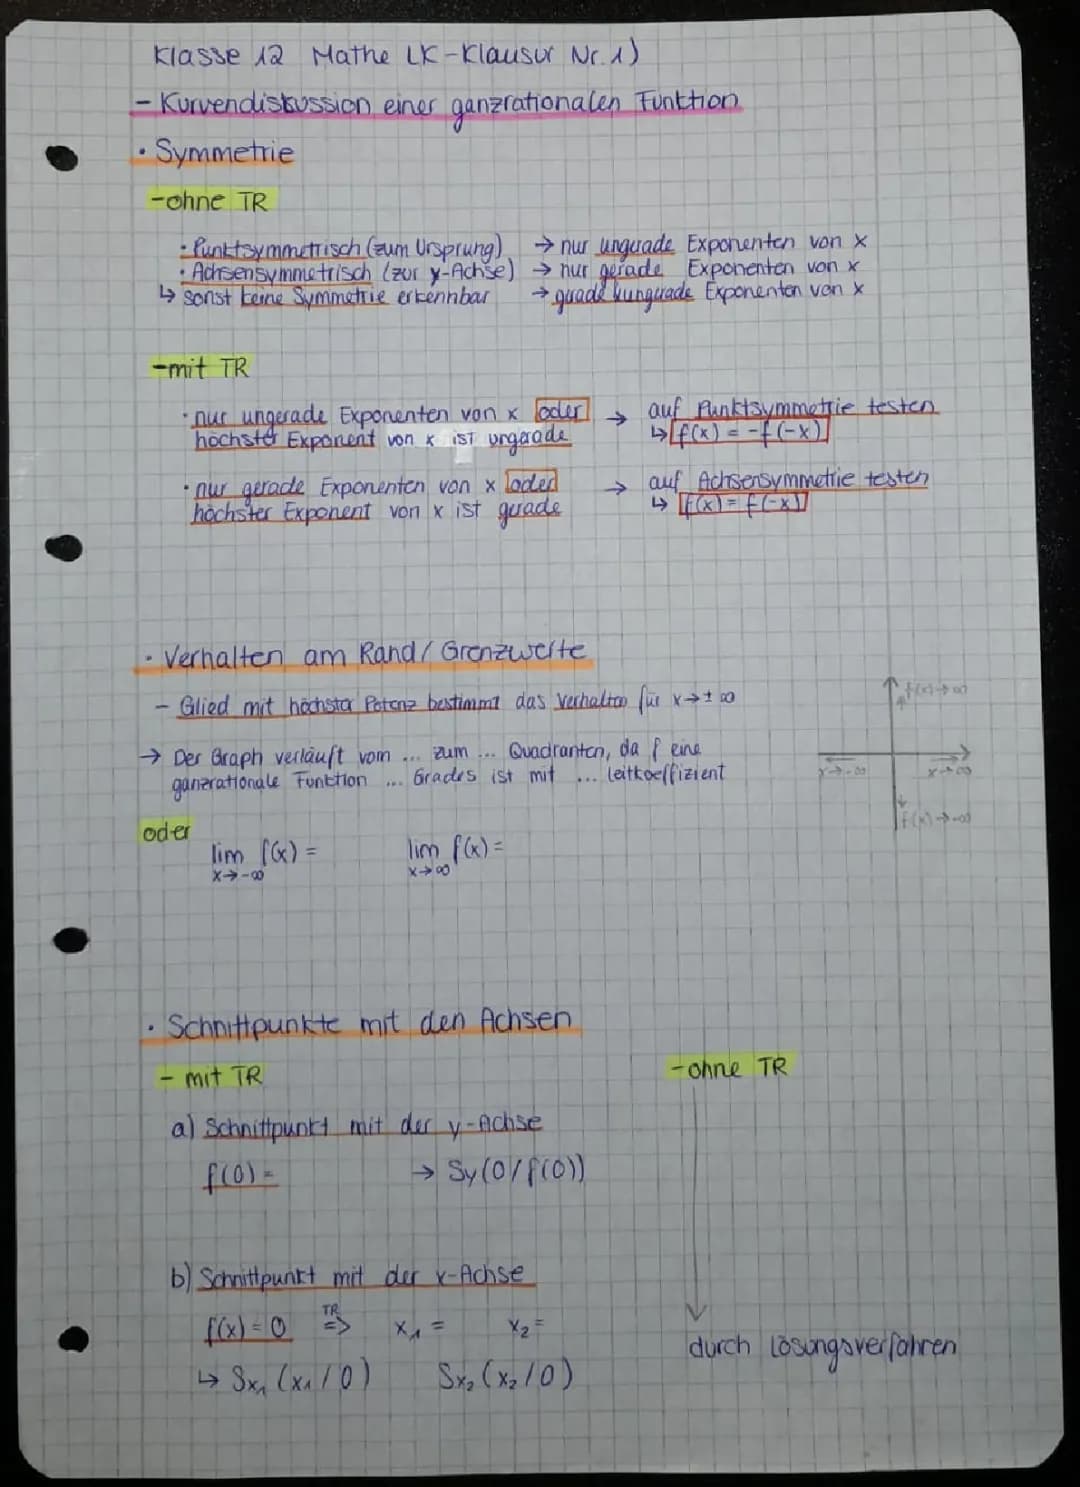 Klasse 12 Mathe LK-Klausur Nr. 1)
- Kurvendiskussion einer ganzrationalen Funktion
• Symmetrie
-ohne TR
• Punktsymmetrisch (zum Ursprung) → nur ungerade Exponenten von x
• Achsensymmetrisch (zur y-Achse) → nur gerade Exponenten von x
↳ sonst keine Symmetrie erkennbar → gerade & ungerade Exponenten von x
-mit TR
• nur ungerade Exponenten von x oder → auf Punktsymmetrie testen
höchster Exponent von x ist ungerade ↳ f(x) = -f(-x)
• nur gerade Exponenten von x oder → auf Achsensymmetrie testen
höchster Exponent von x ist gerade ↳ f(x) = f(-x)
• Verhalten am Rand/Grenzwerte
- Glied mit höchster Potenz bestimmt das Verhalten für x→±∞
f(x)→∞
→ Der Graph verläuft vom ... zum ... Quadranten, da f eine
ganzrationale Funktion ... Grades ist mit ... Leitkoeffizient
x→-∞ x→∞
f(x)→-∞
oder
lim f(x) = lim f(x) =
x→-∞ x→∞
• Schnittpunkte mit den Achsen
- mit TR -ohne TR
a) Schnittpunkt mit der y-Achse
f(0) = → Sy(0/f(0))
b) Schnittpunkt mit der x-Achse
f(x) = 0 TR => x₁ = x₂ =
durch Lösungsverfahren
↳ Sx₁ (x₁/0) Sx₂ (x₂/0)